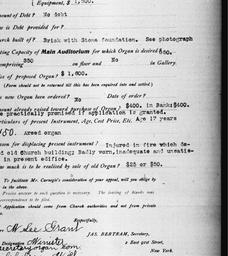 (Equipment, $ 1,500.
Amount of Debt? No debt
Is Debt provided for?
Church built of? Brick with Stone foundation. See photograph
Seating Capacity of Main Auditorium for which Organ is desired? 550.
comprising 350 on floor and No in Gallery.
Price of proposed Organ? $ 1,600.
(Form should not be returned till this has been enquired into and stated)
Is new Organ ordered? No Date of order?
Amount already raised toward purchase of Organ? $400. in Bank; $400.
more practically promised if application is granted.
Particulars of present Instrument, Age, Cost Price, Etc. Age 17 years
$150. A reed organ
Reason for displacing present instrument? Injured in fire which de-
stroyed old church building; Badly worn, inadequate and unsatis-
factory in present edifice.
How much is to be realized by sale of old Organ? $25 or $50.
To facilitate Mr. Carnegie's consideration of your appeal, will you oblige by
in the above.
Precise answer to each question is necessary.
Application should come from Church authorities and not from private
Respectfully,
McLee Grant
JAS. BERTRAM, Secretary,
Designation Minister
2 East 91st Street,
New York.